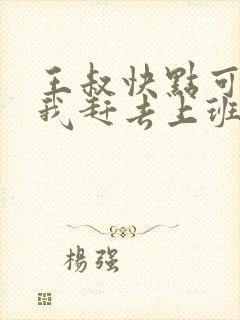 王叔快點可
我赶去上班
楊强